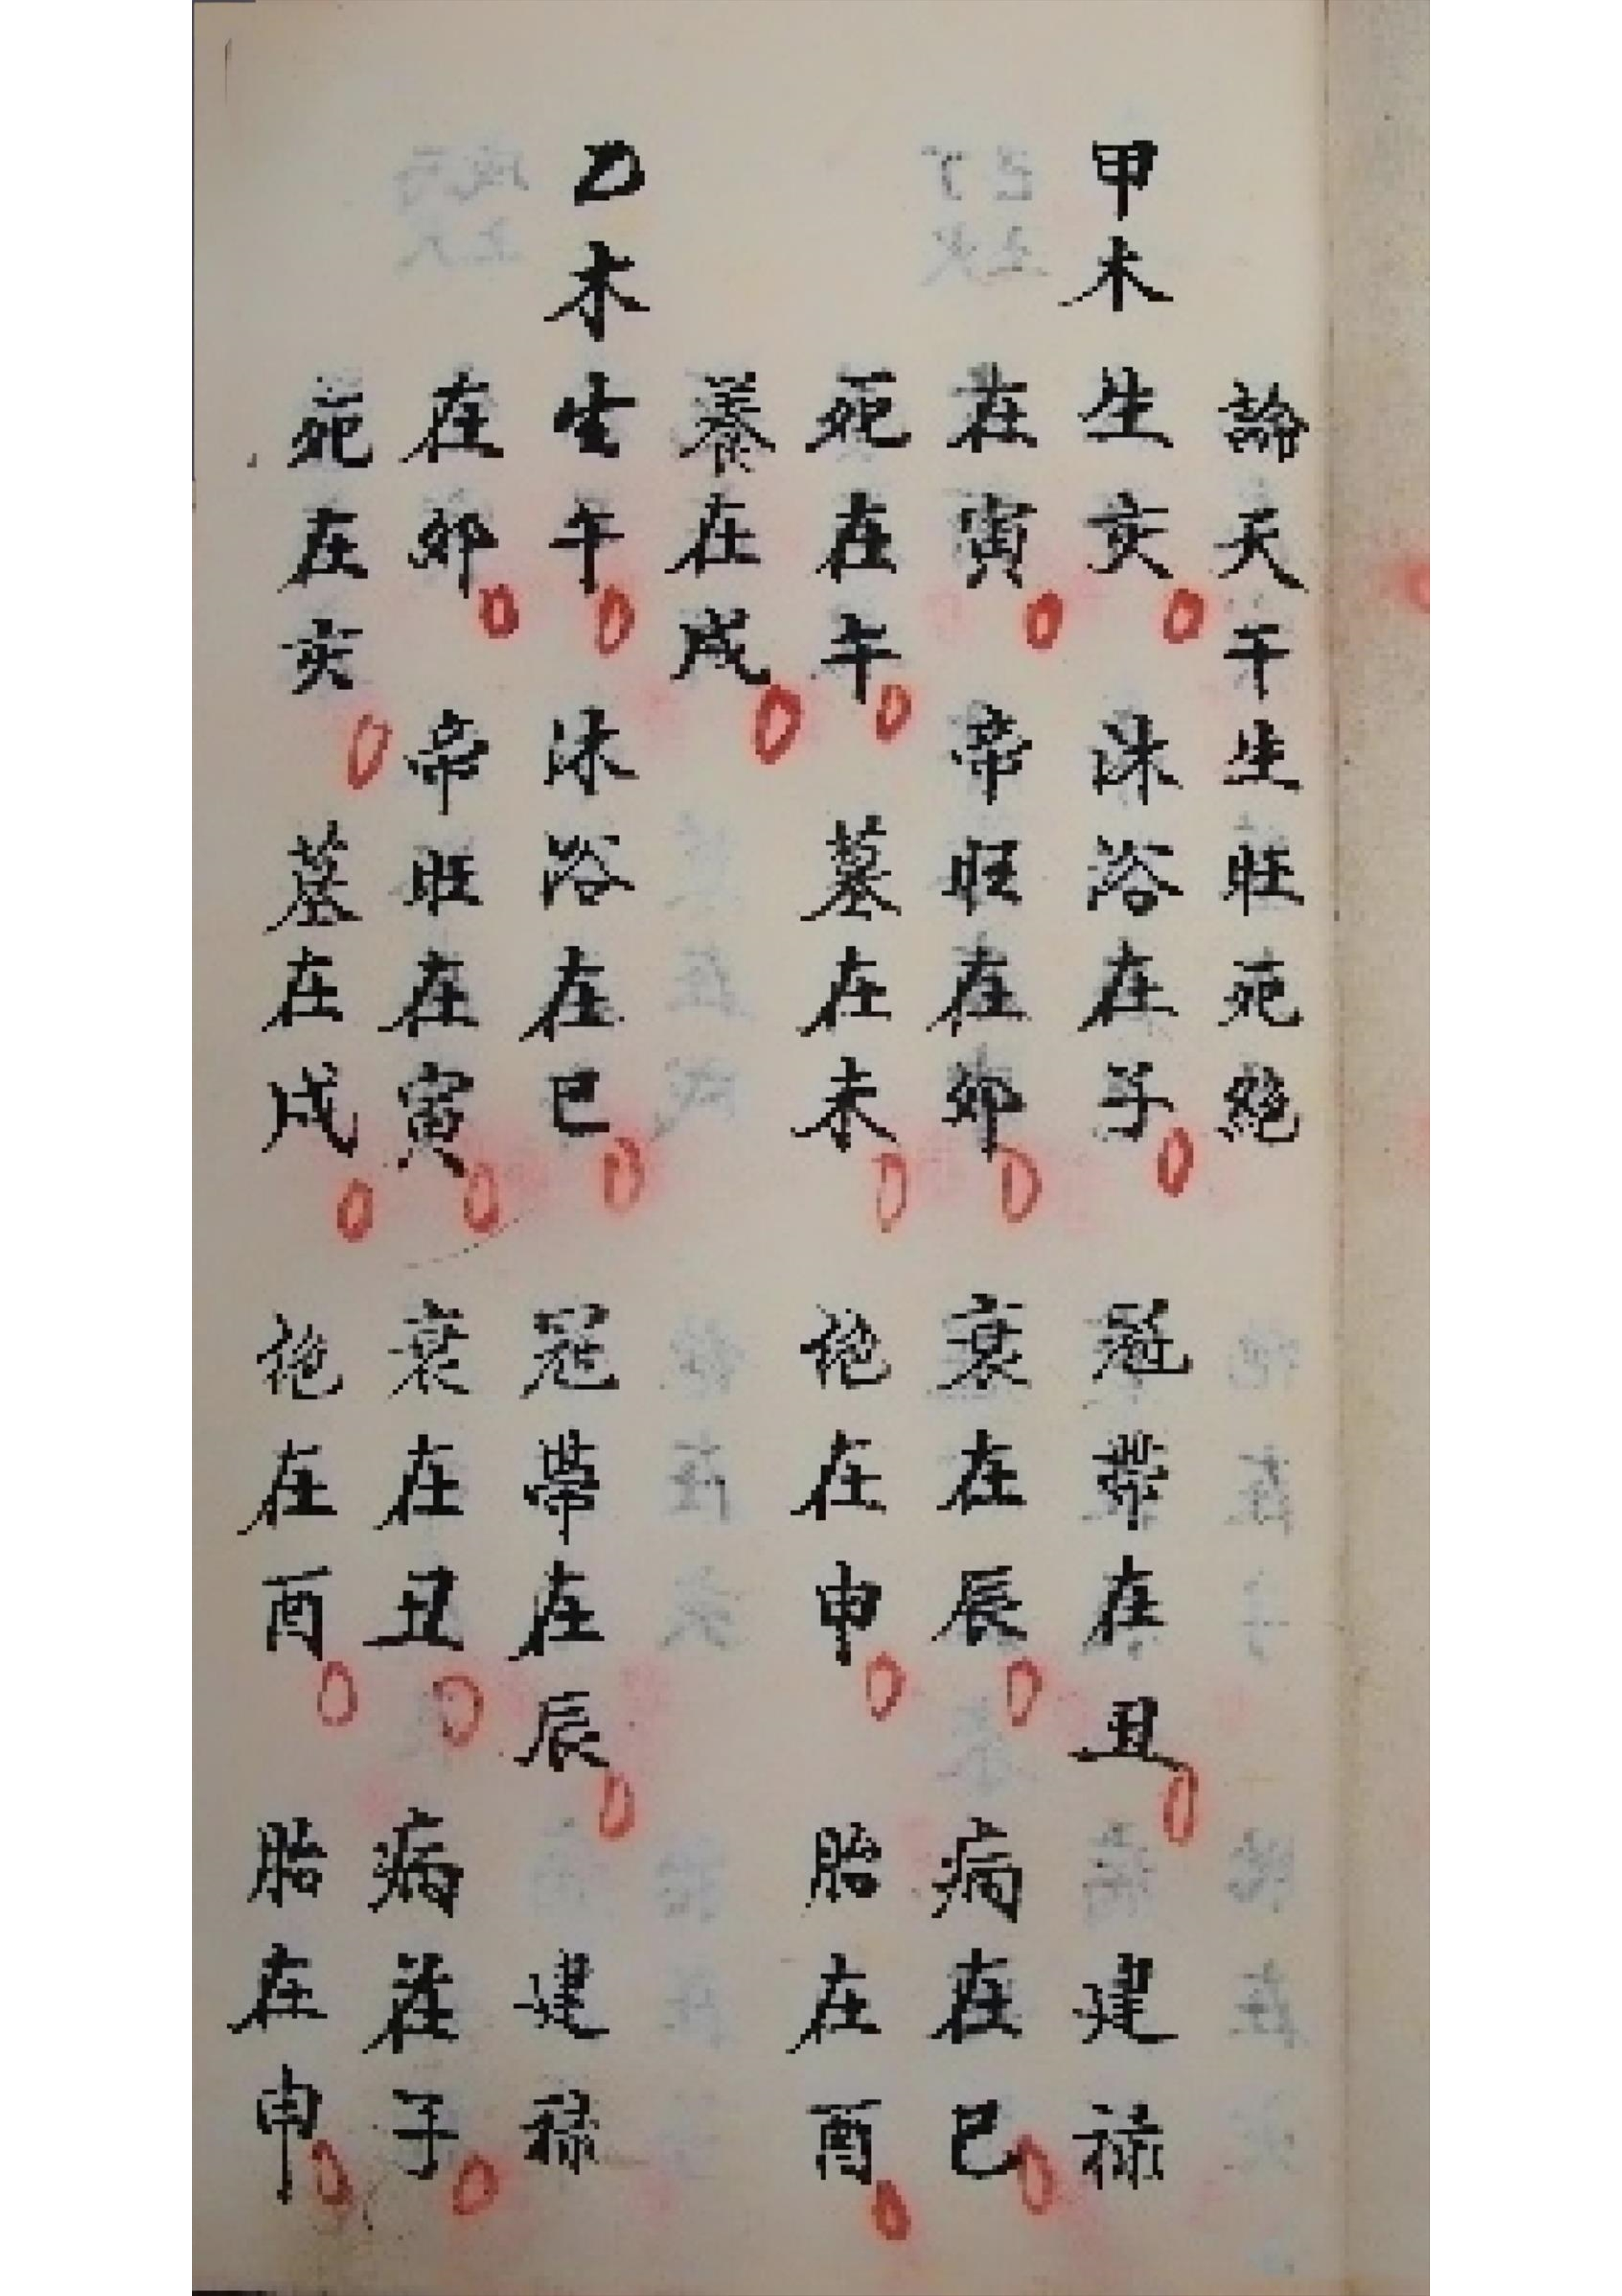 論天干生旺死絶
甲木生亥 沐浴在子 冠帶在丑 建禄
在寅 帝旺在卯 衰在辰 病在巳
死在午 墓在未 絶在申 胎在酉
養在戌
乙木生午 沐浴在巳 冠帶在辰 建禄
在卯 帝旺在寅 衰在丑 病在子
死在亥 墓在戌 絶在酉 胎在申